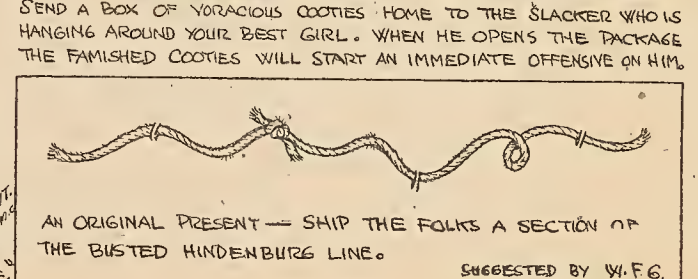 SEND A BOX OF VORACIOUS COOTIES HOME TO THE SLACKER WHO IS
HANGING AROUND YOUR BEST GIRL. WHEN HE OPENS THE PACKAGE
THE FAMISHED COOTIES WILL START AN IMMEDIATE OFFENSIVE ON HIM.
AN ORIGINAL PRESENT — SHIP THE FOLKS A SECTION OF
THE BUSTED HINDENBURG LINE.
SUGGESTED BY W.F.G.